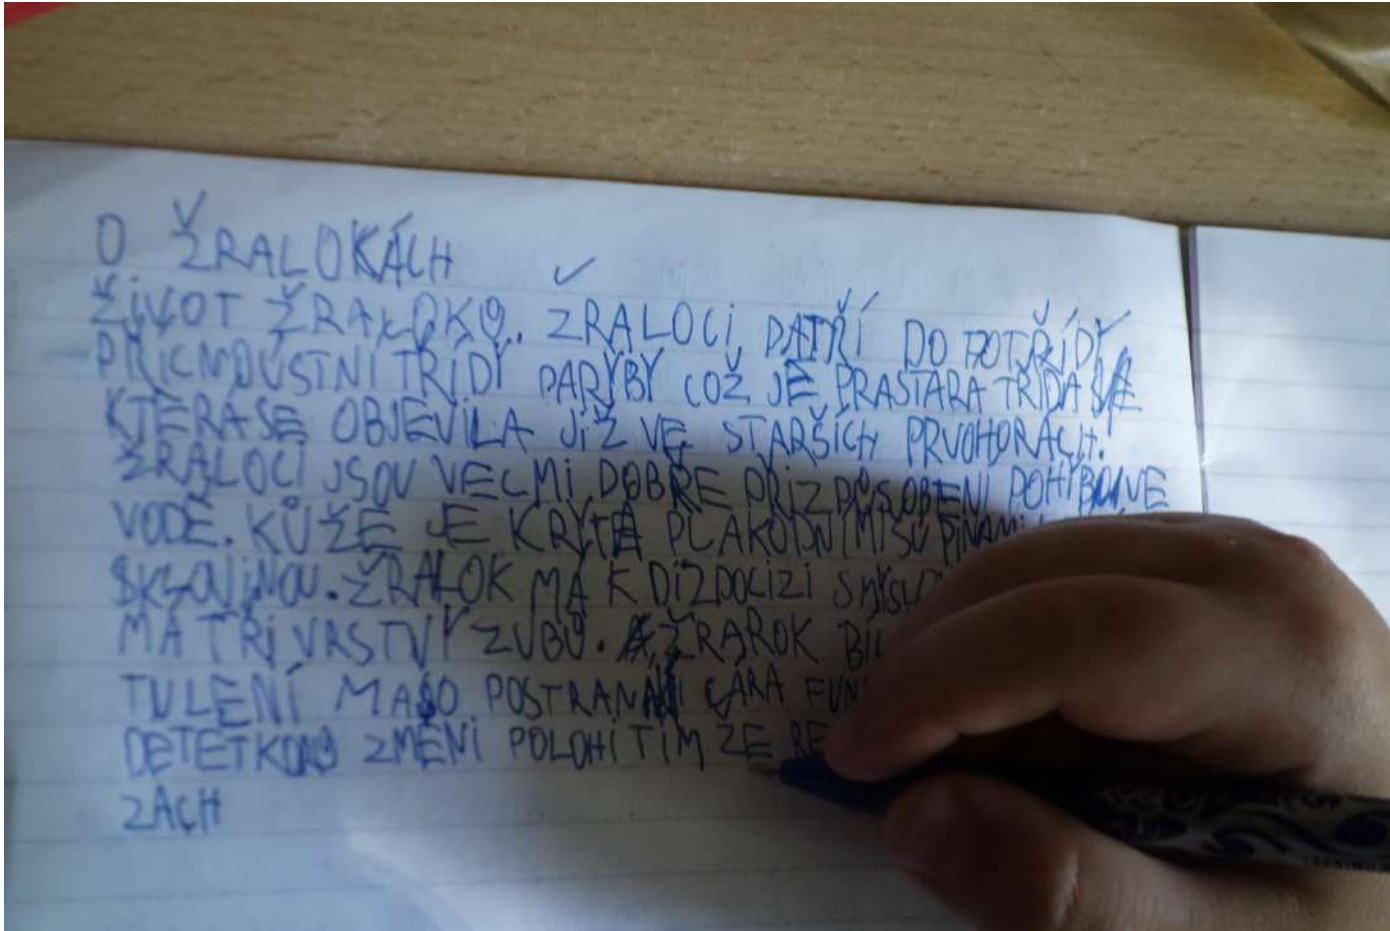 O ŽRALOKÁCH
ŽIVOT ŽRALOKŮ. ŽRALOCI PATŘÍ DO POTŘÍDY
PŘÍČNOÚSTNÍ TŘÍDY PARYBY COŽ JE PRASTARA TŘÍDA
KTERÁ SE OBJEVILA JIŽ VE STARŠÍCH PRVOHORÁCH.
ŽRALOCI JSOU VELMI DOBŘE PŘIZPŮSOBENI POHYBU VE
VODĚ. KŮŽE JE KRYTA PLAKODNÝMI ŠUPINAMI
SKLOVINOU. ŽRALOK MÁ K DIZPOCIZI
MÁ TŘI VRSTVY ZUBŮ. ŽRAROK
TULENÍ MASO POSTRANNÍ ČÁRA
ZMĚNI POLOHI TÍM ŽE
ZÁCH